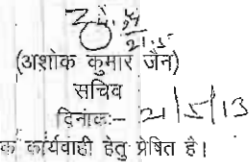 21.5
(अशोक कुमार जैन)
सचिव
दिनांक:- 21/5/13
कार्यवाही हेतु प्रेषित है।